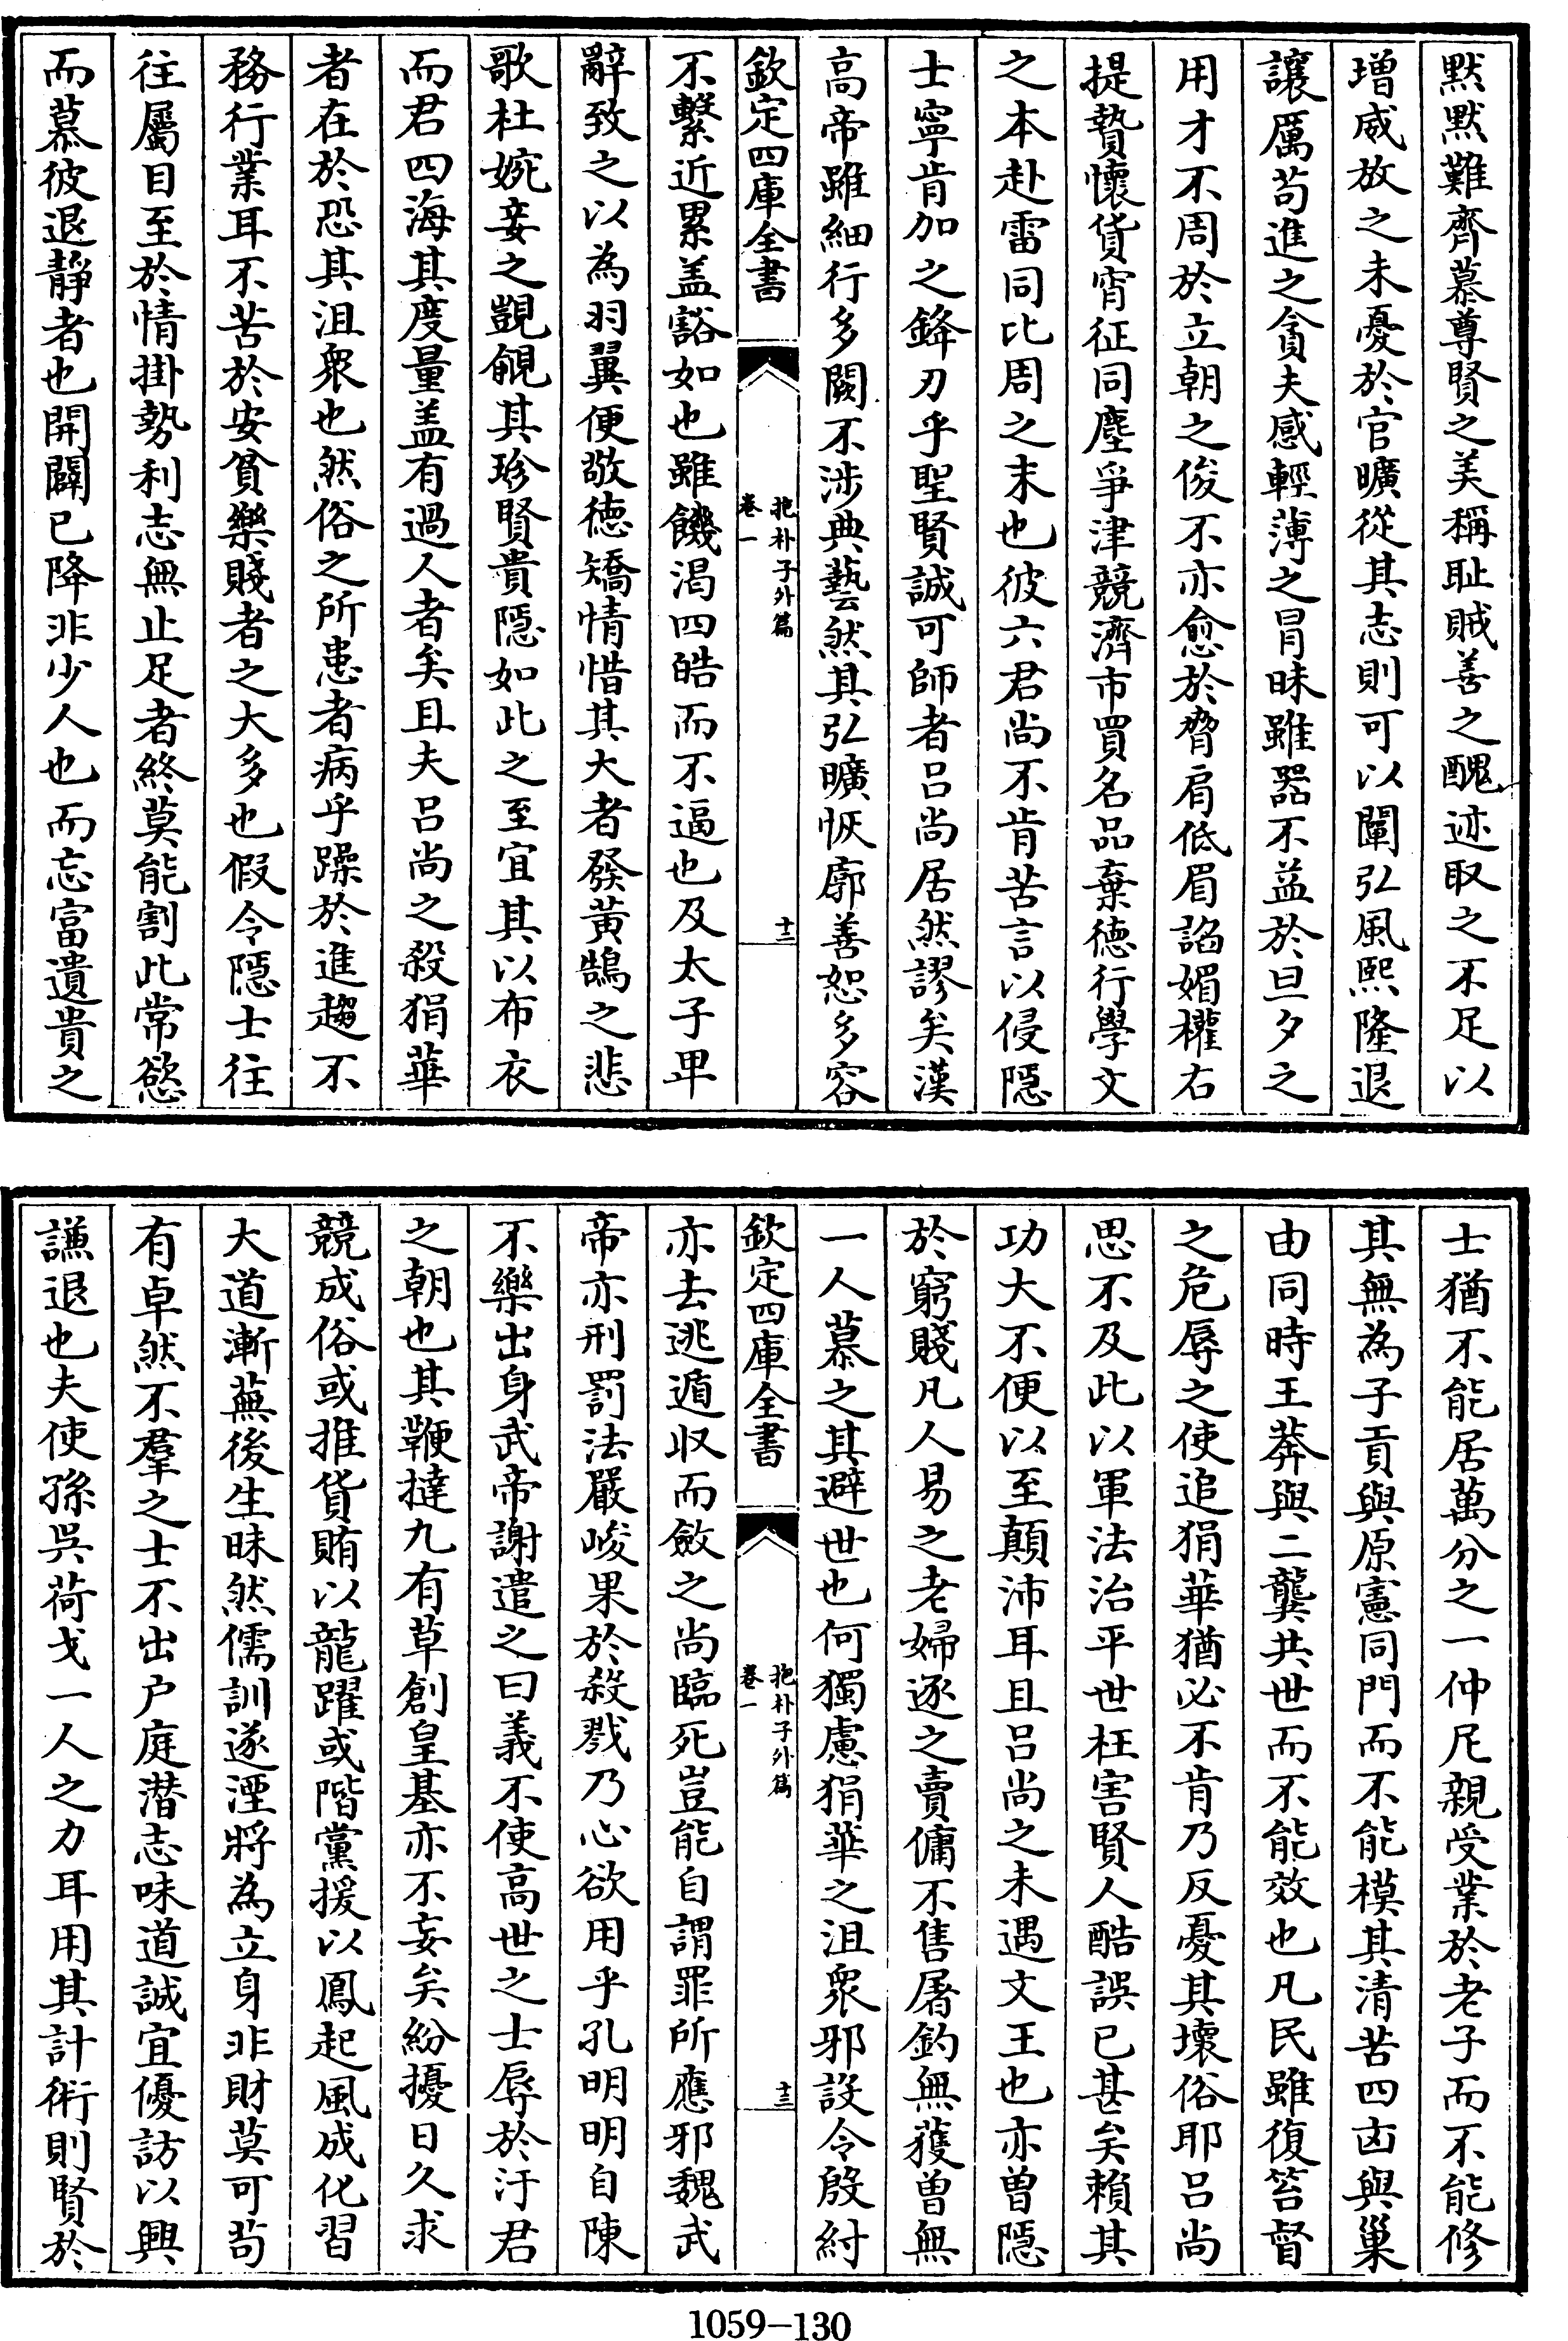 黙黙難齊慕尊賢之美稱耻賊善之醜迹取之不足以
増威放之未憂於官曠從其志則可以闡弘風熙隆退
讓厲苟進之貪夫感輕薄之冒昧雖器不益於旦夕之
用才不周於立朝之俊不亦愈於脅肩低眉諂媚權右
提贄懷貨宵征同塵爭津競濟市買名品棄徳行學文
之本赴雷同比周之末也彼六君尚不肯苦言以侵隠
士寧肯加之鋒刃乎聖賢誠可師者吕尚居然謬矣漢
高帝雖細行多闕不渉典藝然其弘曠恢廓善恕多容
欽定四庫全書
抱朴子外篇
卷一
十二
不繫近累盖豁如也雖饑渇四皓而不逼也及太子卑
辭致之以為羽翼便敬徳矯情惜其大者發黄鵠之悲
歌杜婉妾之覬覦其珍賢貴隠如此之至宜其以布衣
而君四海其度量盖有過人者矣且夫吕尚之殺狷華
者在於恐其沮衆也然俗之所患者病乎躁於進趨不
務行業耳不苦於安貧樂賤者之大多也假令隠士往
往屬目至於情掛勢利志無止足者終莫能割此常慾
而慕彼退靜者也開闢已降非少人也而忘富遺貴之
士猶不能居萬分之一仲尼親受業於老子而不能修
其無為子貢與原憲同門而不能模其清苦四凶與巢
由同時王莽與二龔共世而不能效也凡民雖復笞督
之危辱之使追狷華猶必不肯乃反憂其壞俗耶吕尚
思不及此以軍法治平世枉害賢人酷誤已甚矣賴其
功大不便以至顛沛耳且吕尚之未遇文王也亦曽隠
於窮賤凡人易之老婦逐之賣傭不售屠釣無獲曽無
一人慕之其避世也何獨慮狷華之沮衆邪設令殷紂
欽定四庫全書
抱朴子外篇
卷一
十三
亦去逃遁収而斂之尚臨死豈能自謂罪所應邪魏武
帝亦刑罰法嚴峻果於殺戮乃心欲用乎孔明明自陳
不樂出身武帝謝遣之曰義不使髙世之士辱於汙君
之朝也其鞭撻九有草創皇基亦不妄矣紛擾日久求
競成俗或推貨賄以龍躍或階黨援以鳳起風成化習
大道漸蕪後生昧然儒訓遂湮將為立身非財莫可苟
有卓然不羣之士不出户庭潜志味道誠宜優訪以興
謙退也夫使孫吳荷戈一人之力耳用其計術則賢於
1059-130